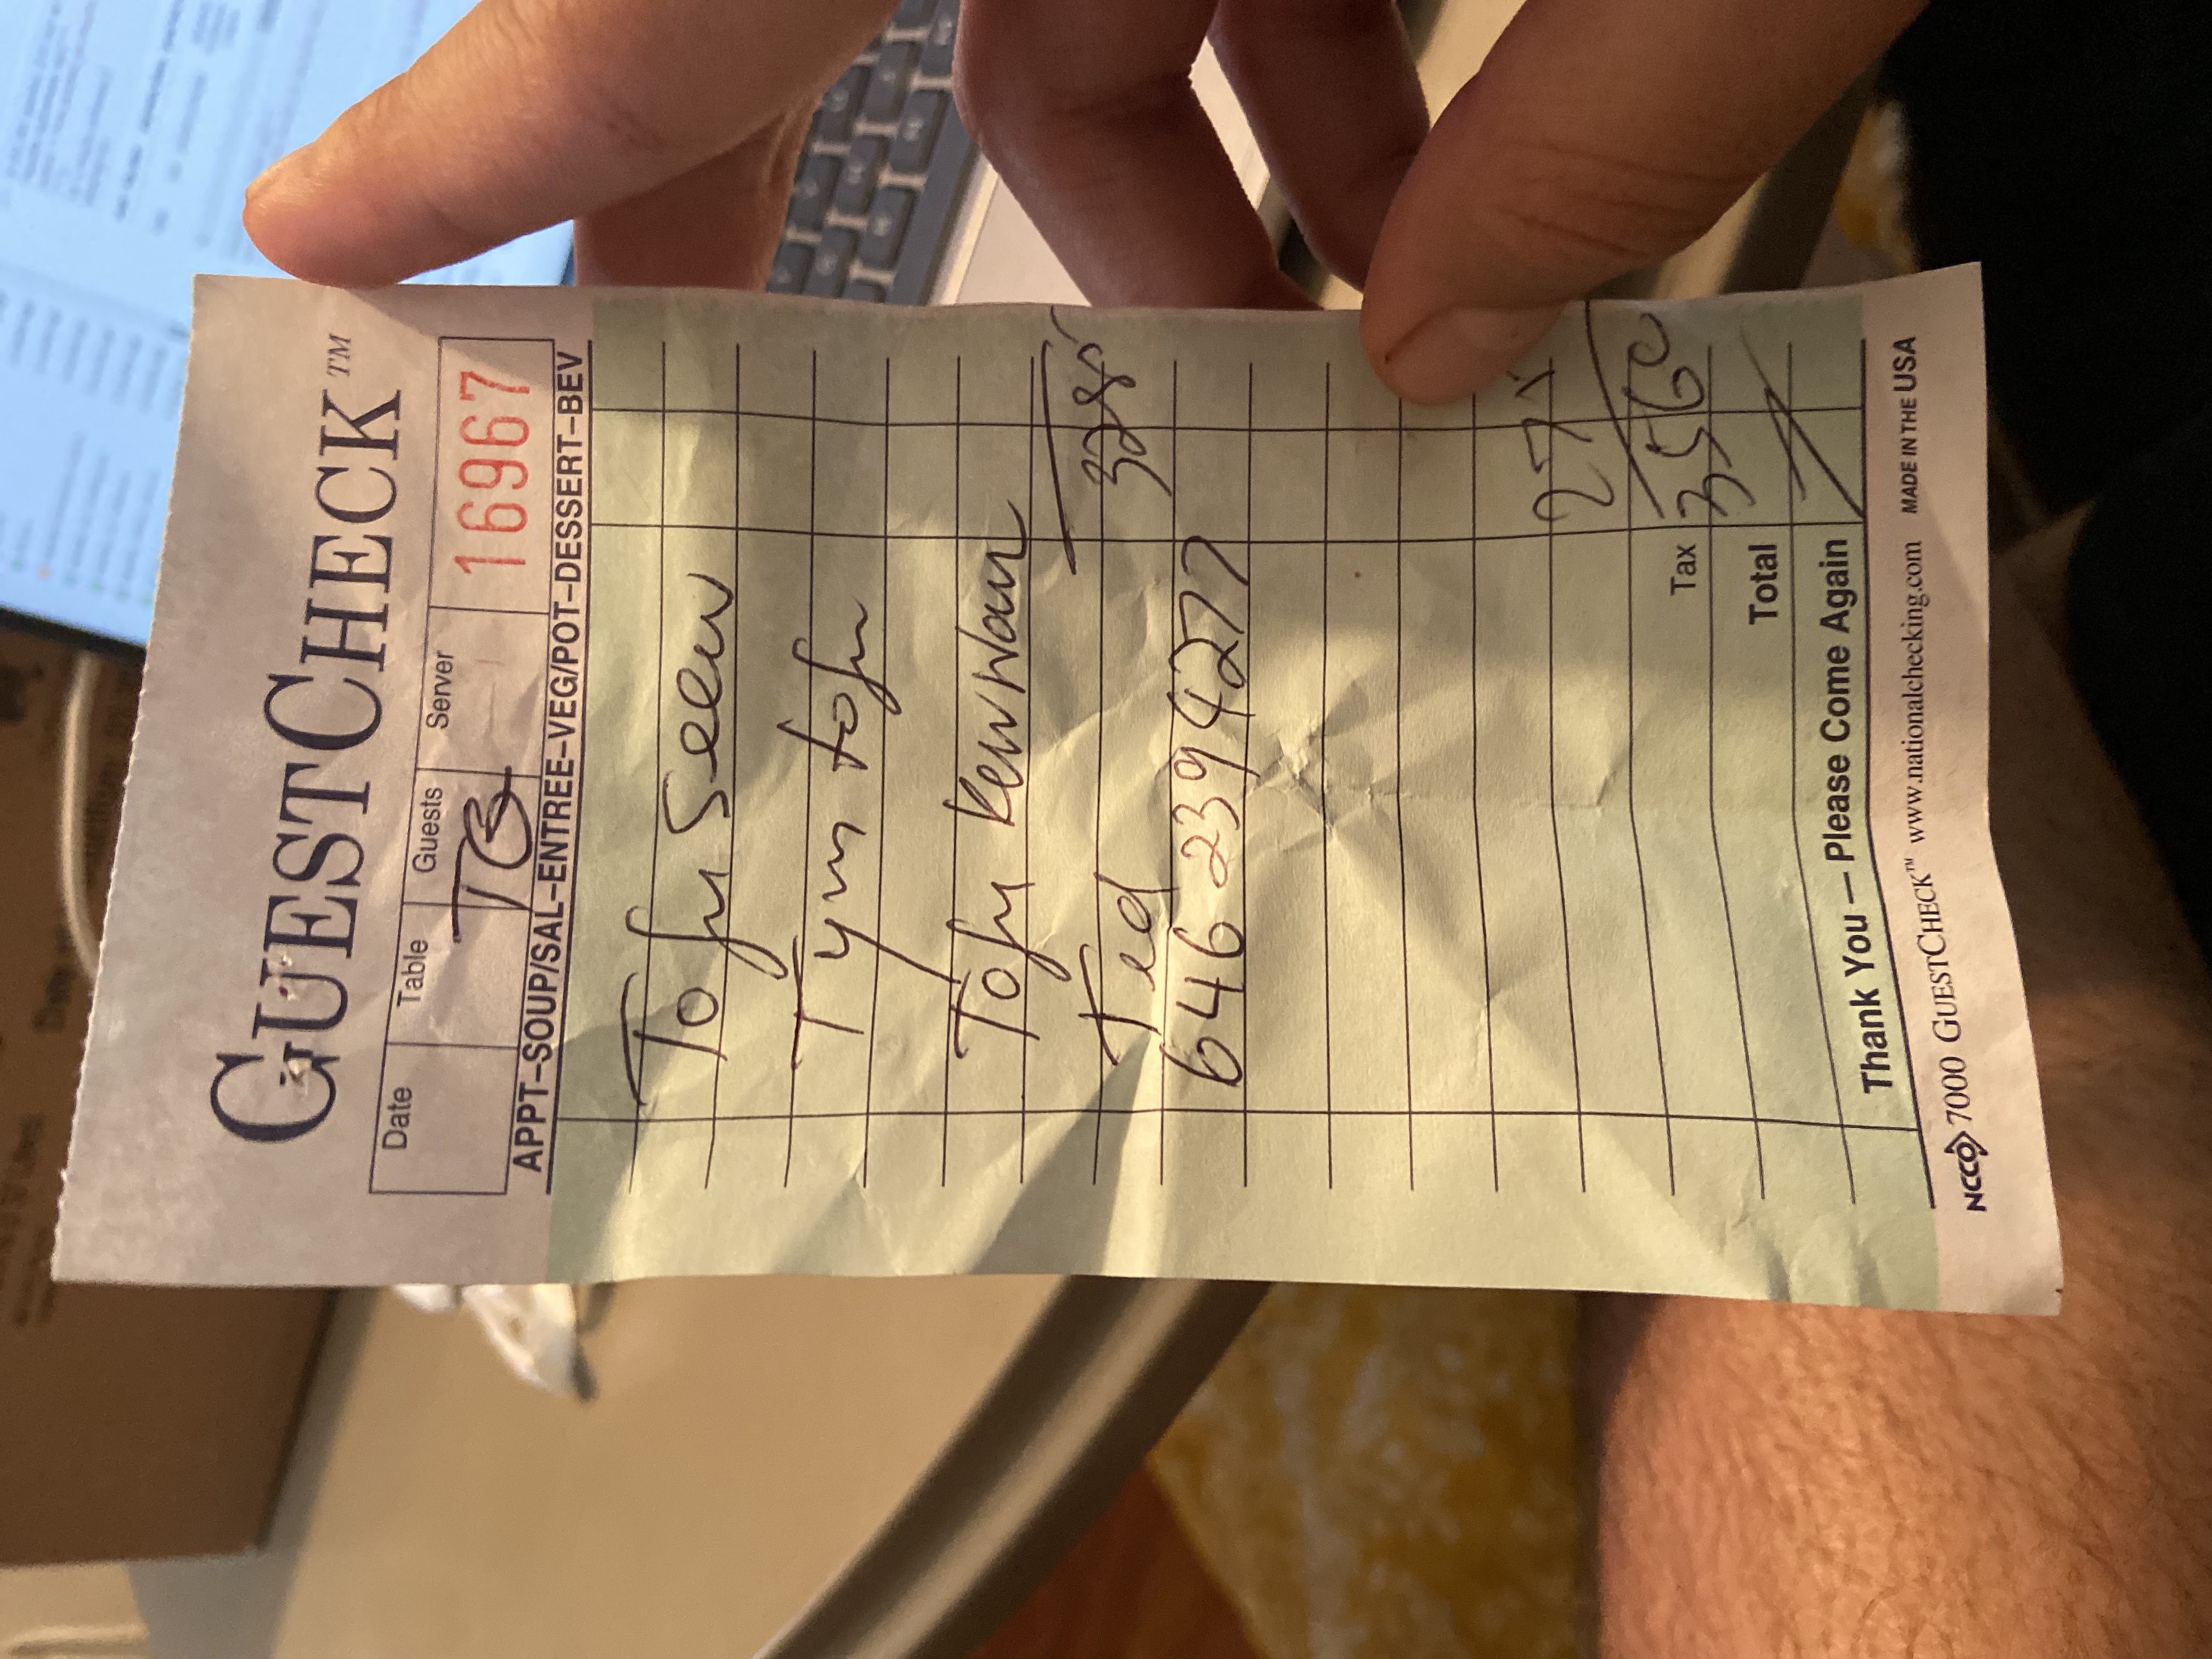 GUESTCHECK™
Date Table Guests Server 16967
TG
APPT–SOUP/SAL–ENTREE–VEG/POT–DESSERT–BEV
Tofu Seew
Tym tofu
Tofu Kewwan
3285
Ted
646 2394277
275
Tax 3560
Total
Thank You — Please Come Again
NCCO 7000 GUESTCHECK™ www.nationalchecking.com MADE IN THE USA